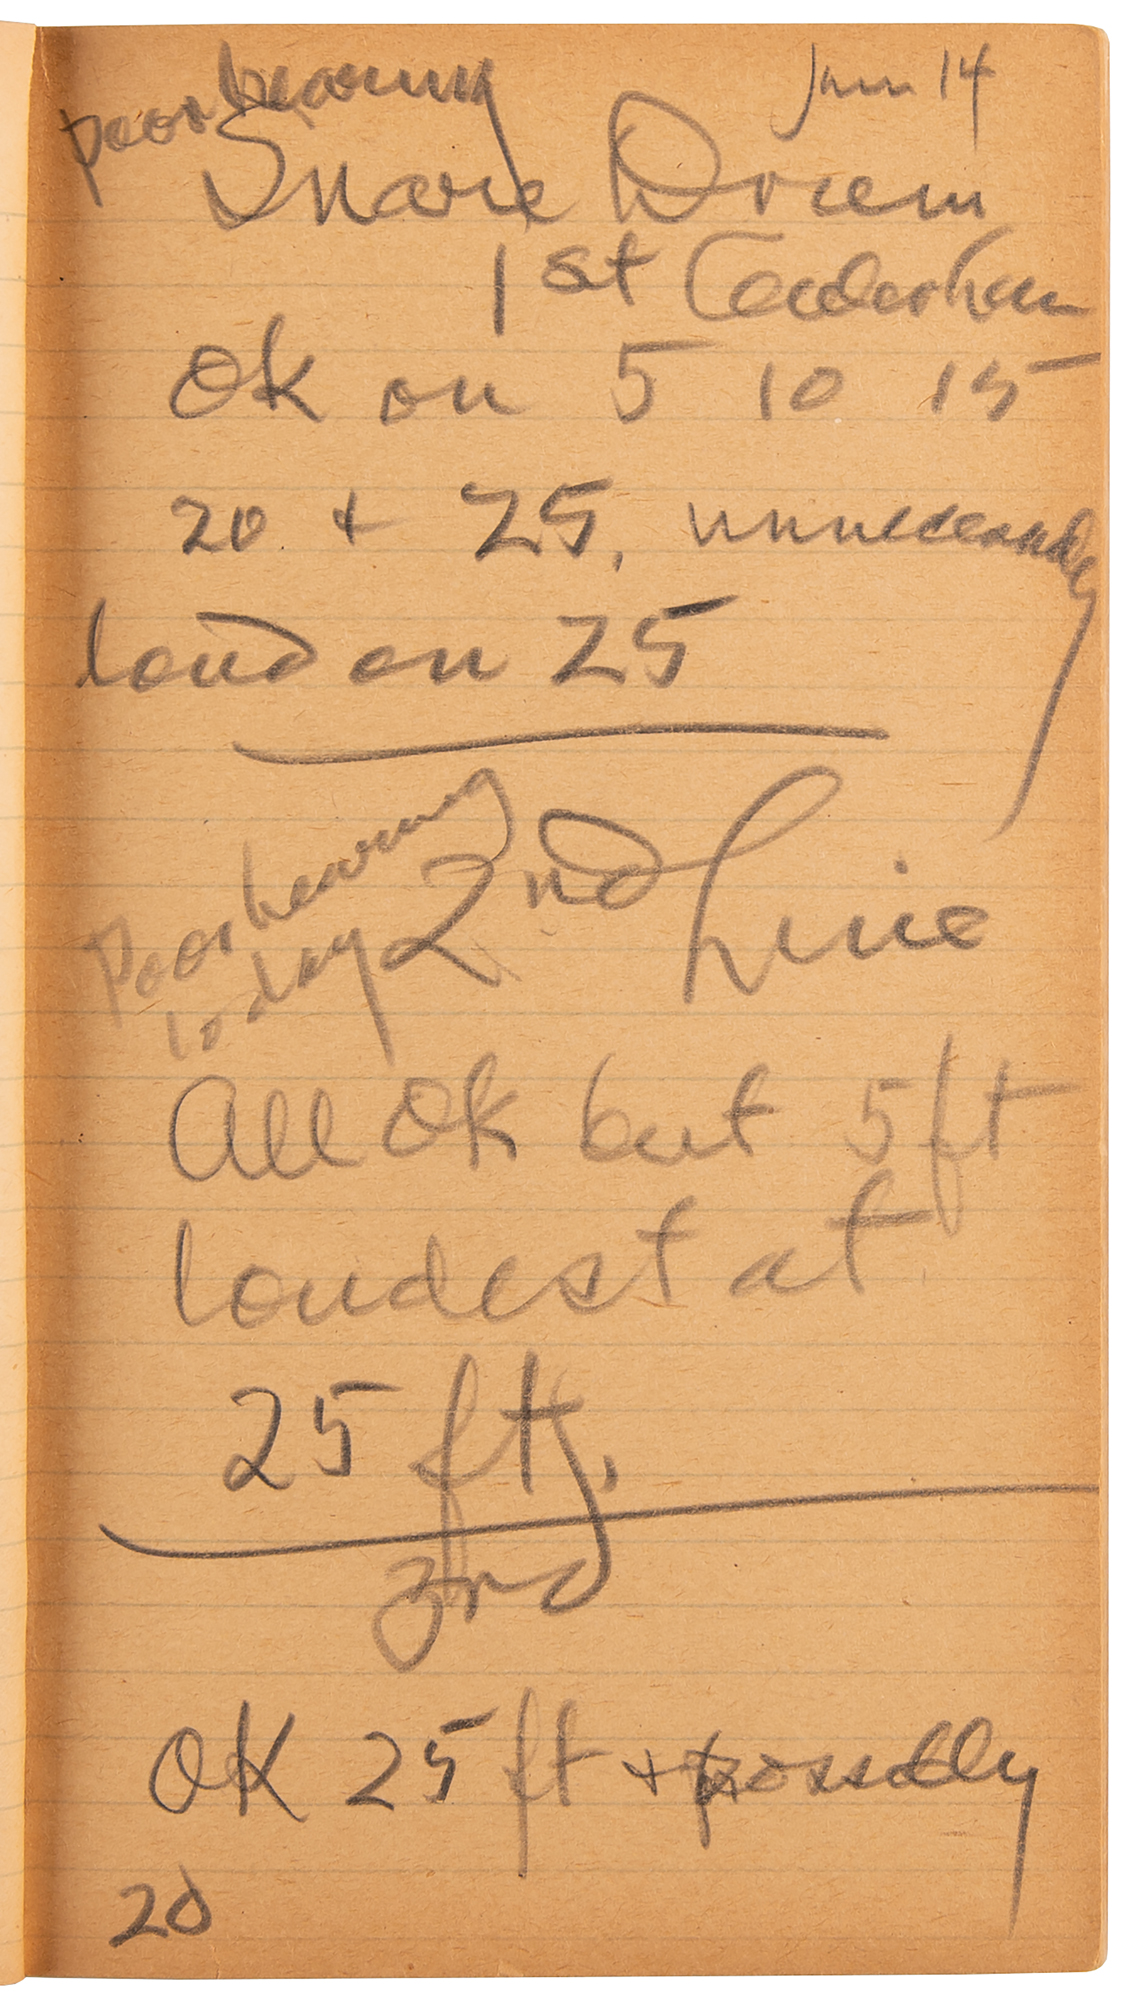 poor hearing
Jan 14
Snare Drum
1st
OK on 5 10 15
20 + 25, unnecessarily
loud on 25
Poor hearing
today
2nd Line
All OK but 5 ft
loudest at
25 ft,
3rd
OK 25 ft + possibly
20